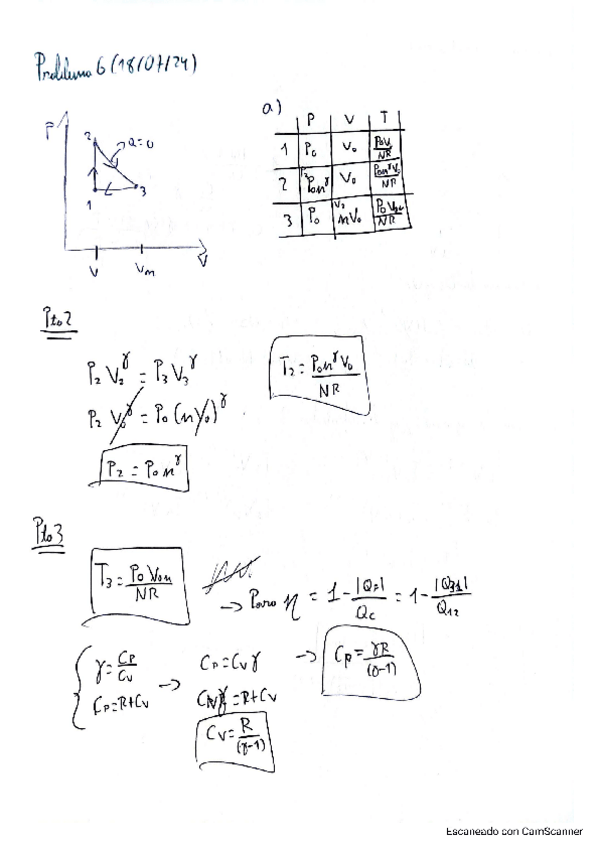 Problema 6 (18/07/24)
a)
P V T
1 P₀ V₀ P₀V₀/NR
2 P₂ P₀n^γ V₀ P₀n^γV₀/NR
3 P₀ nV₀ P₀V₀n/NR
P
2 Q=0
1 3
V Vm V
Pto2
P₂ V₂^γ = P₃ V₃^γ
P₂ V₀^γ = P₀ (n V₀)^γ
P₂ = P₀ n^γ
T₂ = P₀n^γV₀/NR
Pto3
T₃ = P₀ V₀n/NR
→ Para η = 1 - |Q_F|/Q_c = 1 - |Q₃₁|/Q₁₂
γ = Cp/Cv → Cp = Cv γ → Cp = γR/(γ-1)
Cp = R + Cv Cvγ = R + Cv
Cv = R/(γ-1)
Escaneado con CamScanner